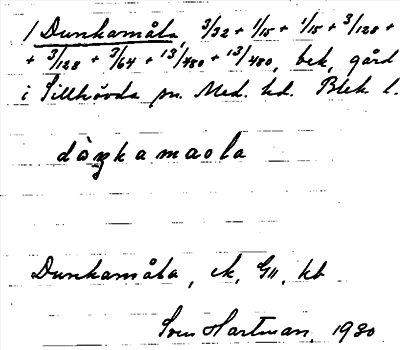 1 Dunkamåla, 3/32 + 1/15 + 1/15 + 3/128 +
+ 3/128 + 3/64 + 13/480 + 13/480, bek. gård
i Sillhövda sn. Med. hd. Blek. l.
dàŋkamaola
Dunkamåla, ek, G11, kb
Sven Hartman 1930